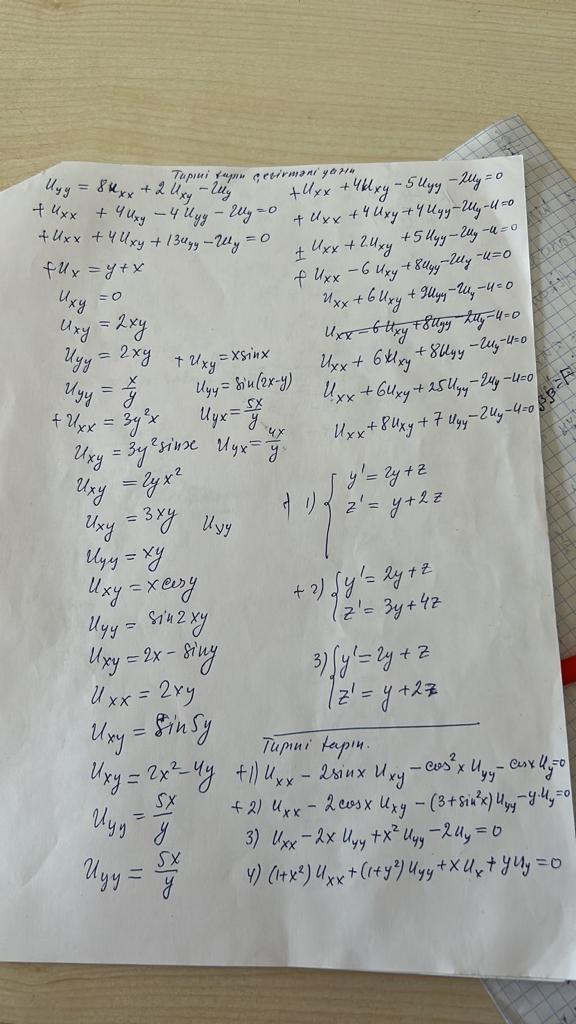 Tipini tapın çevirməni yazın
Uyy = 8Uxx + 2Uxy - 2Uy
+Uxx + 4Uxy - 4Uyy - 2Uy = 0
+Uxx + 4Uxy + 13Uyy - 2Uy = 0
+Ux = y + x
Uxy = 0
Uxy = 2xy
Uyy = 2xy + Uxy = xsinx
Uyy = x/y Uyy = sin(2x-y)
+Uxx = 3y²x Uyx = 5x/y
Uxy = 3y²sinx Uyx = 4x/y
Uxy = 2yx²
Uxy = 3xy Uyy
Uyy = xy
Uxy = xcosy
Uyy = sin2xy
Uxy = 2x - siny
Uxx = 2xy
Uxy = sin5y
Uxy = 2x² - 4y
Uyy = 5x/y
Uyy = 5x/y
+Uxx + 4Uxy - 5Uyy - 2Uy = 0
+Uxx + 4Uxy + 4Uyy - 2Uy - u = 0
± Uxx + 2Uxy + 5Uyy - 2Uy - u = 0
+ Uxx - 6Uxy + 8Uyy - 2Uy - u = 0
Uxx + 6Uxy + 9Uyy - 2Uy - u = 0
Uxx - 6Uxy + 8Uyy - 2Uy - u = 0
Uxx + 6Uxy + 8Uyy - 2Uy - u = 0
Uxx + 6Uxy + 25Uyy - 2Uy - u = 0
Uxx + 8Uxy + 7Uyy - 2Uy - u = 0
+ 1) { y' = 2y + z
z' = y + 2z
+ 2) { y' = 2y + z
z' = 3y + 4z
3) { y' = 2y + z
z' = y + 2z
Tipini tapın.
+1) Uxx - 2sinx Uxy - cos²x Uyy - cosx Uy = 0
+2) Uxx - 2cosx Uxy - (3 + sin²x) Uyy - y·Uy = 0
3) Uxx - 2x Uyy + x² Uyy - 2Uy = 0
4) (1 + x²) Uxx + (1 + y²) Uyy + x Ux + y Uy = 0